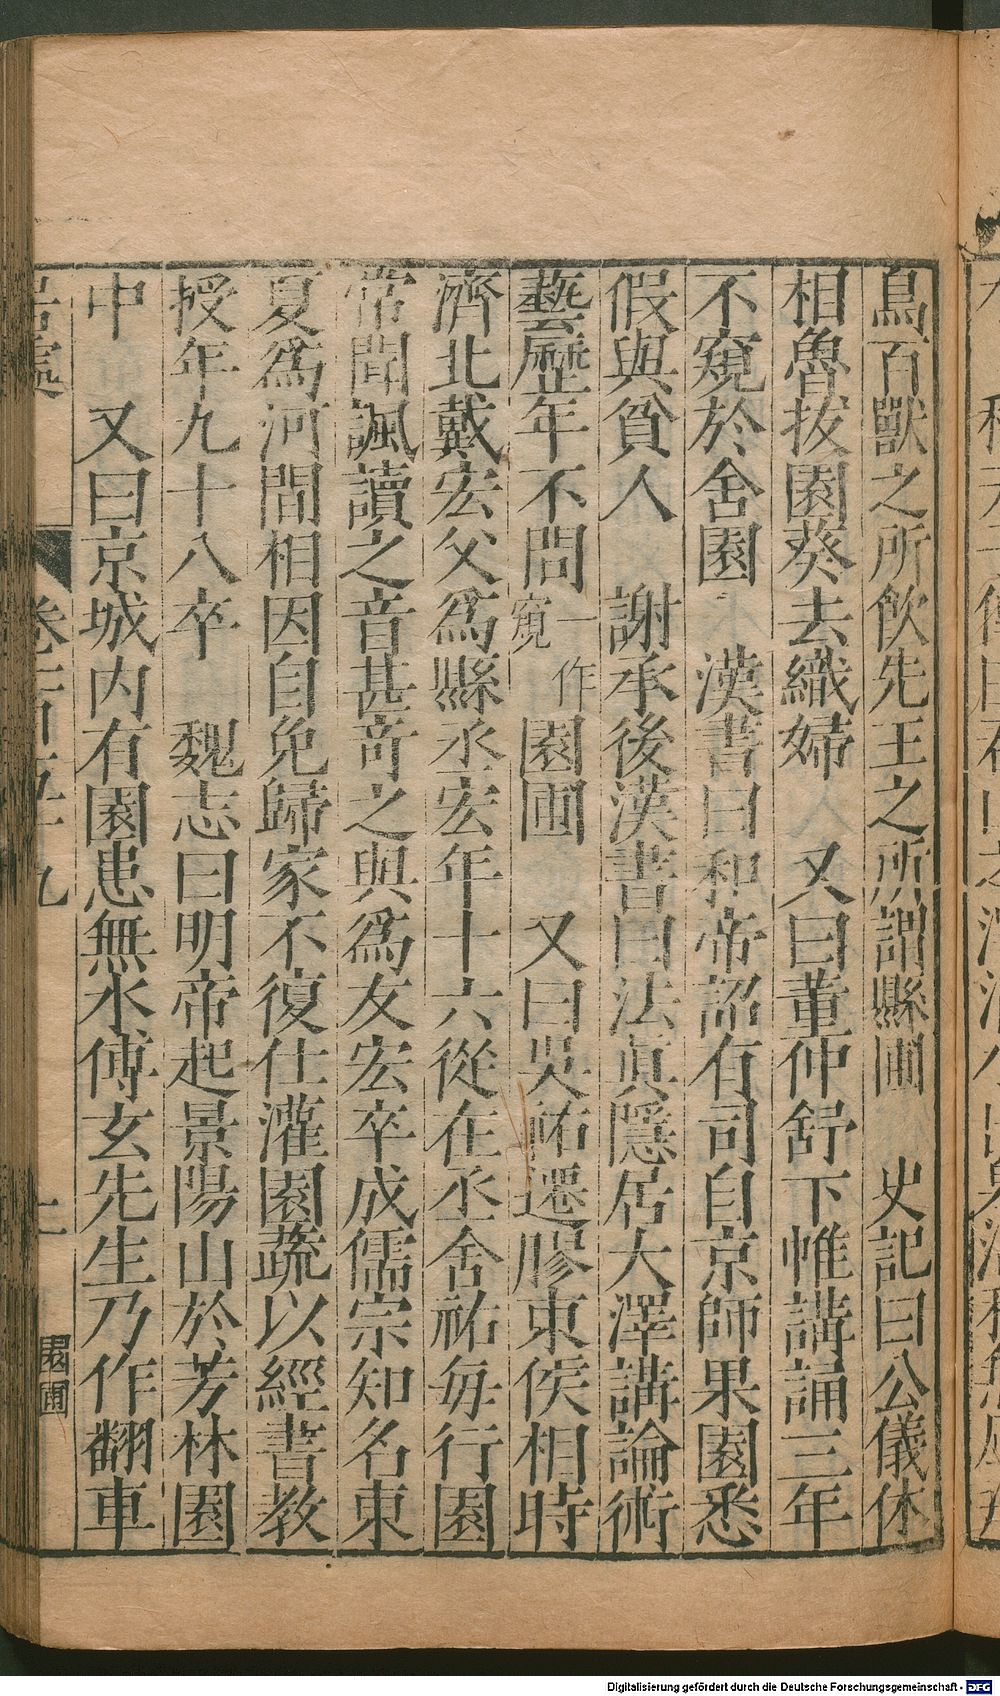 鳥百獸之所飲先王之所謂縣圃　史記曰公儀休
相魯拔園葵去織婦　又曰董仲舒下帷講誦三年
不窺於舍園　漢書曰和帝詔有司自京師果園悉
假與貧人　謝承後漢書曰法眞隱居大澤講論術
藝歷年不問一作窺園圃　又曰吳祐遷膠東侯相時
濟北戴宏父爲縣丞宏年十六從在丞舍祐每行園
常聞諷讀之音甚奇之與爲友宏卒成儒宗知名東
夏爲河間相因自免歸家不復仕灌園蔬以經書教
授年九十八卒　魏志曰明帝起景陽山於芳林園
中　又曰京城內有園患無水傅玄先生乃作翻車
居處　卷　九　園圃
Digitalisierung gefördert durch die Deutsche Forschungsgemeinschaft - DFG